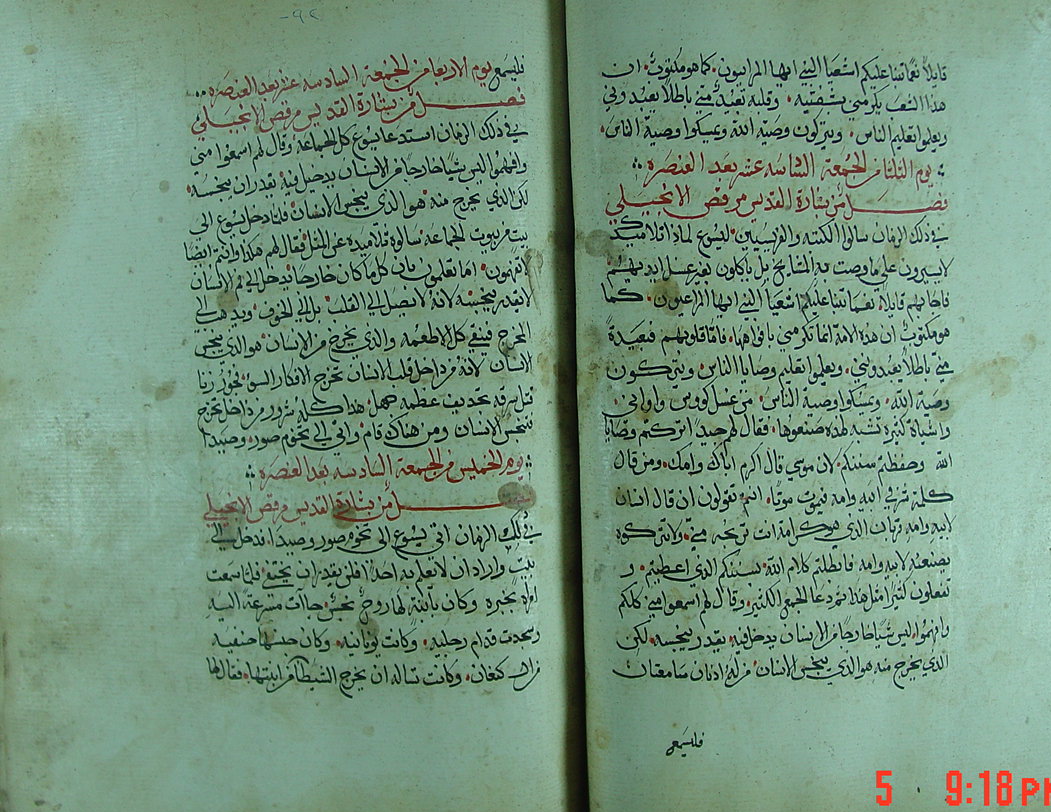 قايلاً نعما تنبا عليكم اشعيا النبي ايها المراييون. كما هو مكتوب ان
هذا الشعب يكرمني بشفتيه. وقلبه بعيد مني باطلا يعبدوني
ويعلموا تعليم الناس. ويتركون وصية الله ويمسكوا وصية الناس.
يوم الثلثا من الجمعة السادسه عشر بعد العنصره
فصل من بشارة القديس مرقص الانجيلي
في ذلك الزمان سالوا الكتبه والفريسيين ليسوع لماذا تلاميذك
لا يسيرون على ما وصت به المشايخ بل ياكلون بغير غسل ايديهم
فاجابهم قايلا نعما تنبا عليكم اشعيا النبي ايها المراعيون. كما
هو مكتوب ان هذه الامة انما تكرمني بافواهها. فاما قلوبهم فبعيدة
مني باطلا يعبدوني. ويعلموا تعليم وصايا الناس. ويتركون
وصية الله. ويمسكوا وصية الناس. من غسل كووس واواني.
واشياة كثيرة تشبه لهذه صنعوها. فقال لهم جيدا تركتم وصايا
الله وحفظتم سنتكم. لان موسي قال اكرم اباك وامك. ومن قال
كلمة شر في ابيه وامه فيموت موتا. انتم تقولون ان قال انسان
لابيه وامه قربان الذي هو كرامة انت تربحه مني. ولا تتركوه
يصنع لابيه وامه فابطلتم كلام الله بسنتكم الذي اعطيتم. و
تفعلون كثيرا مثل هذا ثم دعا الجمع الكثير. وقال لهم اسمعوا مني كلكم
وافهموا ليس شيا خارجا من الانسان يدخل فيه. يقدر ينجسه. لكن
الذي يخرج منه هو الذي ينجس الانسان. من له اذنان سامعتان
فليسمع
فليسمع يوم الاربعا من الجمعة السادسه عشر بعد العنصره
فصل من بشارة القديس مرقص الانجيلي
في ذلك الزمان استدعا يسوع كل الجماعه وقال لهم اسمعوا مني
وافهموا ليس شيا خارجا من الانسان يدخل فيه يقدر ان ينجسه.
لكن الذي يخرج منه هو الذي ينجس الانسان. فلما دخل يسوع الى
بيت من بيوت الجماعه سالوه تلاميذه عن المثل فقال لهم هكذا وانتم ايضا
لا تفهمون. اما تعلمون بان كل ما كان خارجا يدخل الى فم الانسان
لا يقدر ينجسه لانه لا يصل الى القلب بل الي الجوف. ويذهب الى
المخرج فينقي كل الاطعمه والذي يخرج من الانسان هو الذي ينجس
الانسان لانه من داخل قلب الانسان تخرج الافكار السو فجور زنا
قتل سرقه تجديف عظمه جهل. هذا كله شرور من داخل تخرج
تنجس الانسان ومن هناك قام واتي الي تخوم صور وصيدا
يوم الخميس من الجمعة السادسه بعد العنصره
فصل من بشارة القديس مرقص الانجيلي
في ذلك الزمان اتي يسوع الى تخوم صور وصيدا. فدخل الي
بيت واراد ان لا تعلم به احدا فلم يقدر ان يختفي فلما سمعت
امراه بخبره وكان بابنة لها روح نجس. جاآت مسرعة اليه
وسجدت قدام رجليه. وكانت يونانيه. وكان جنسها صنفيه
من ال كنعان. وكانت تساله ان يخرج الشيطان من ابنتها. فقال لها
5 9:18